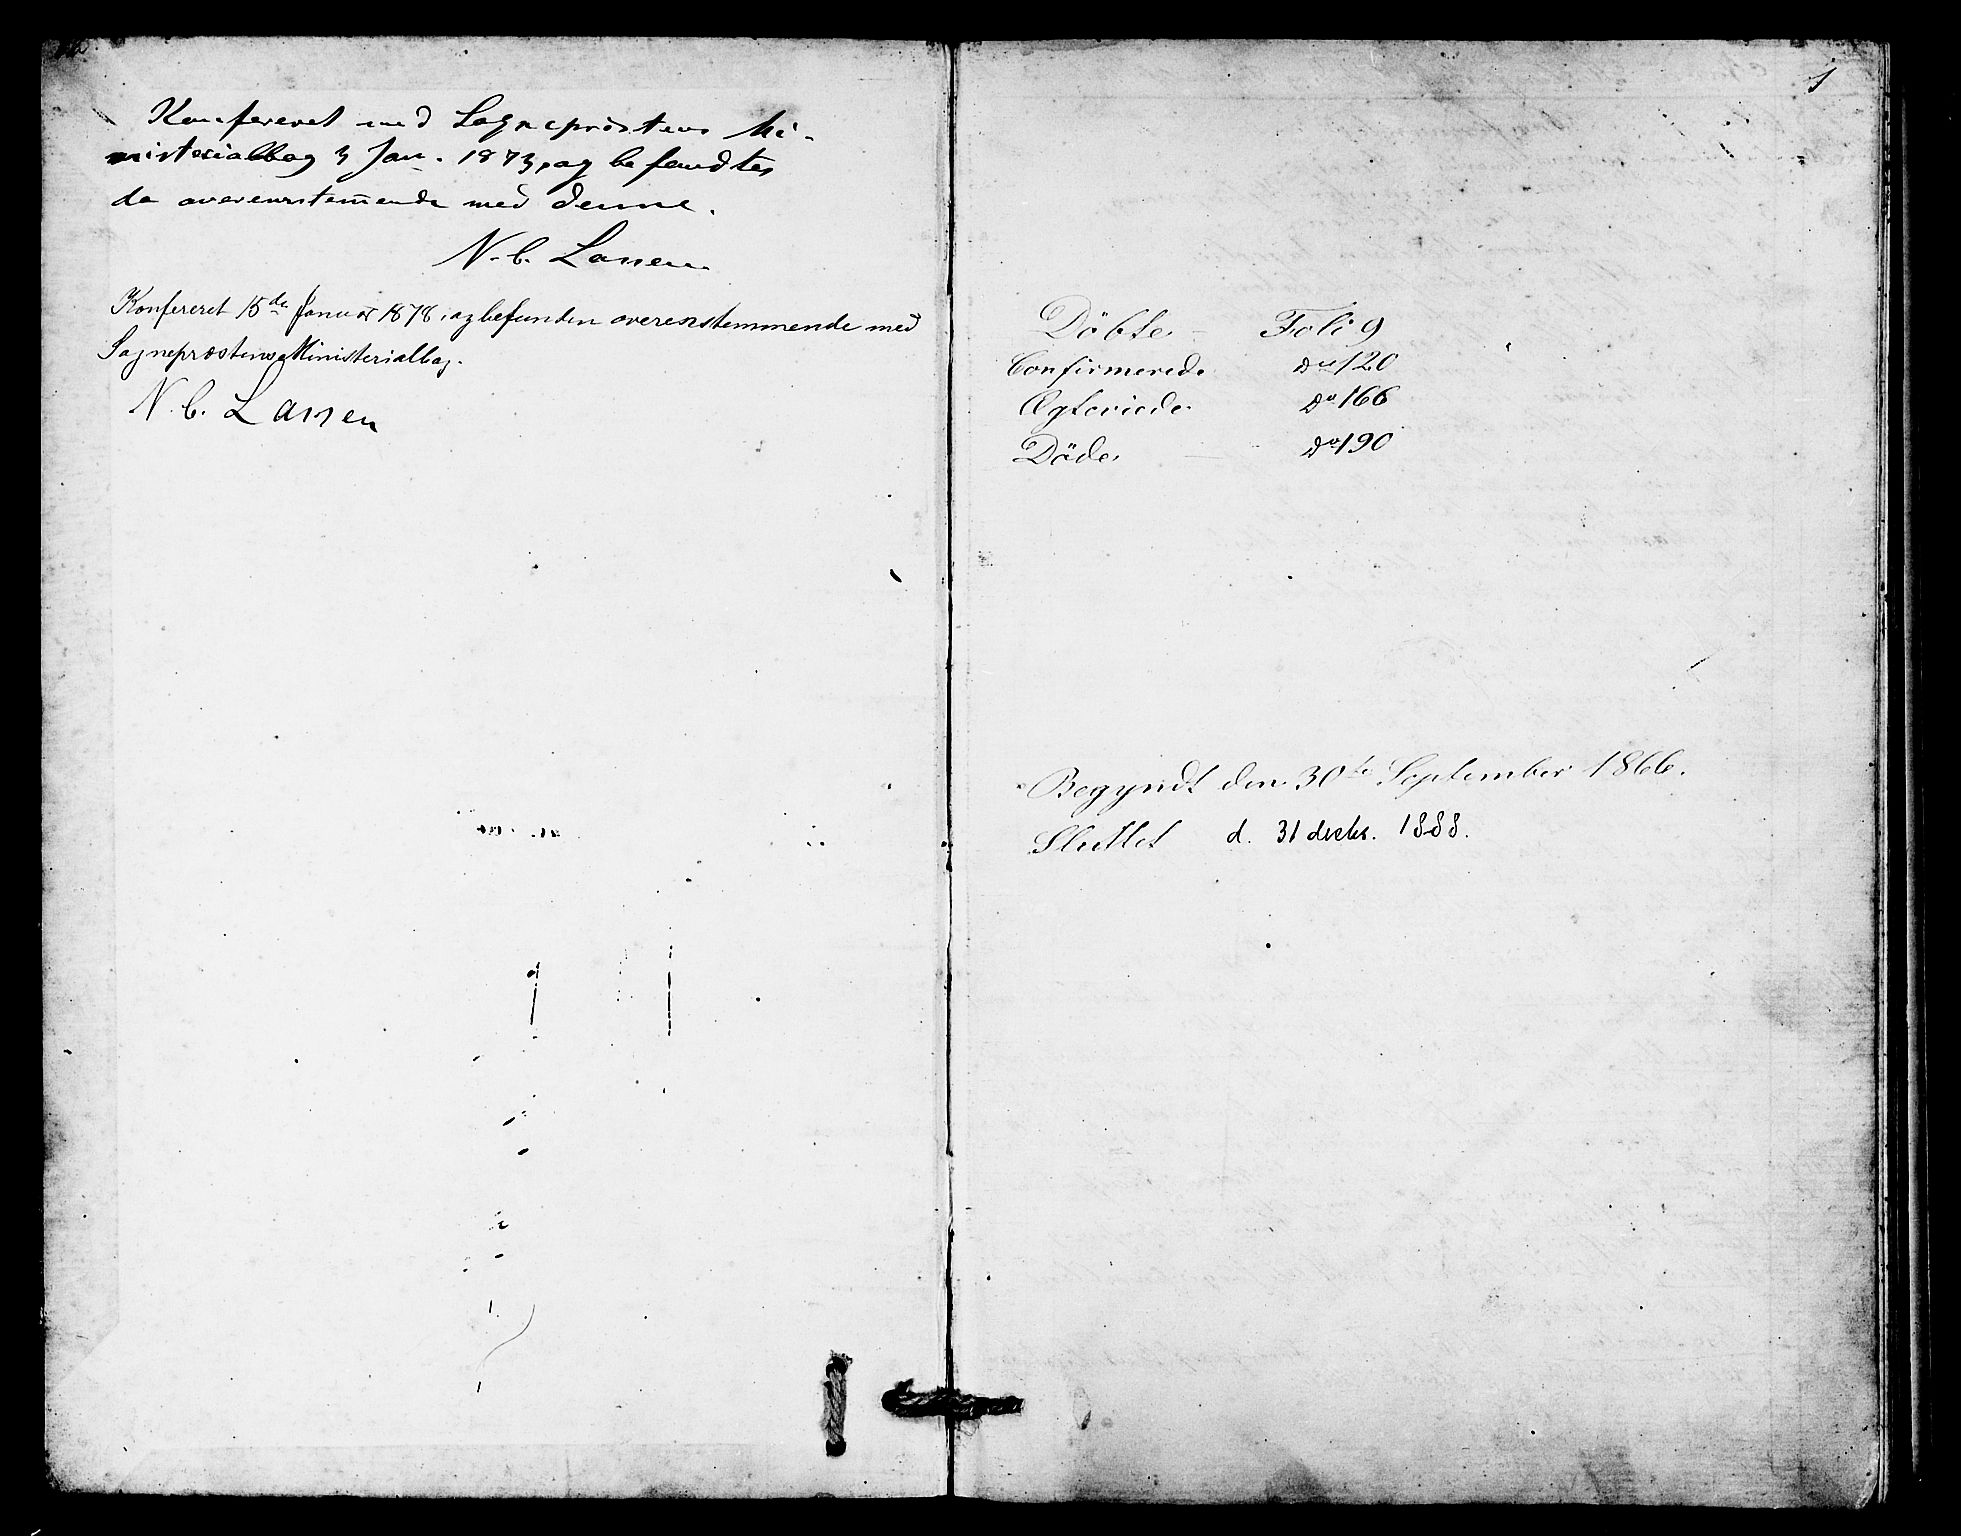 Konfereret med Sogneprestens Mi-
nisterialbog 3 Jan. 1873, og befandtes
da overensstem̅ende med denne.
N. C. Lassen
Konfereret 15de Januar 1878 og befunden overensstemmende med
Sogneprestens Ministerialbog.
N. C. Lassen
1
Döbte - Foli 9
Confirmerede do 120
Ægteviede do 166
Döde - do 190
Begyndt den 30te September 1866.
Sluttet d. 31 decbr. 1888.